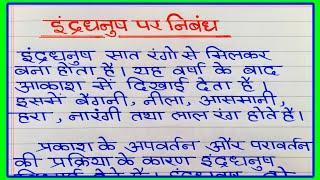 इंद्रधनुष पर निबंध
इंद्रधनुष सात रंगो से मिलकर
बना होता है। यह वर्षा के बाद
आकाश में दिखाई देता है।
इसमें बैंगनी, नीला, आसमानी,
हरा, नारंगी तथा लाल रंग होते हैं।
प्रकाश के अपवर्तन और परावर्तन
की प्रक्रिया के कारण इंद्रधनुष